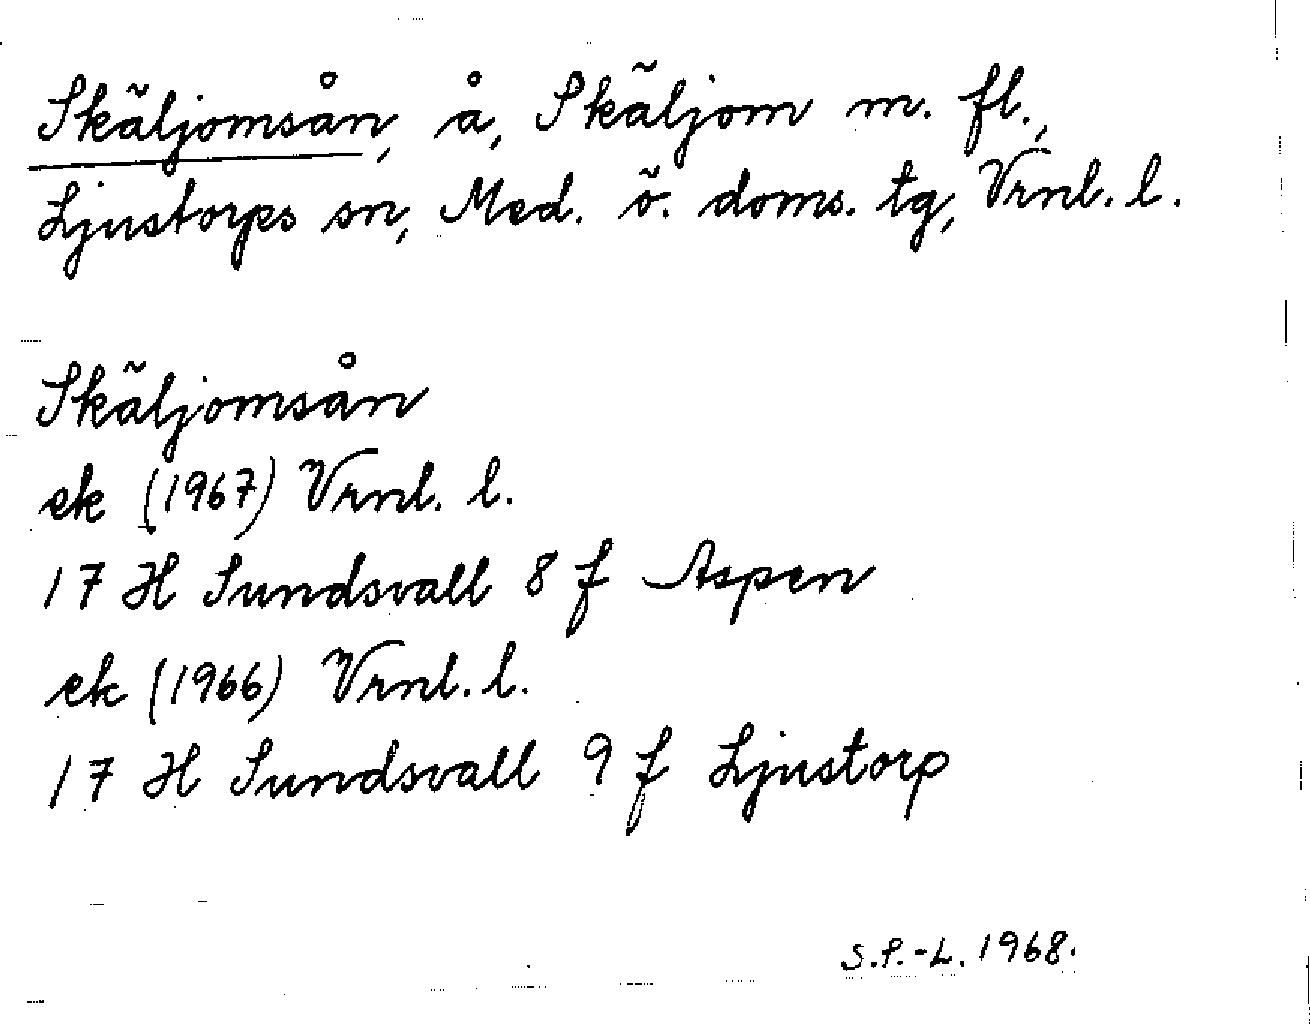 Skäljomsån, å, Skäljom m. fl.,
Ljustorps sn, Med. ö. doms. tg, Vrnl. l.
Skäljomsån
ek (1967) Vrnl. l.
17 H Sundsvall 8 f Aspen
ek (1966) Vrnl. l.
17 H Sundsvall 9 f Ljustorp
S.P.-L. 1968.